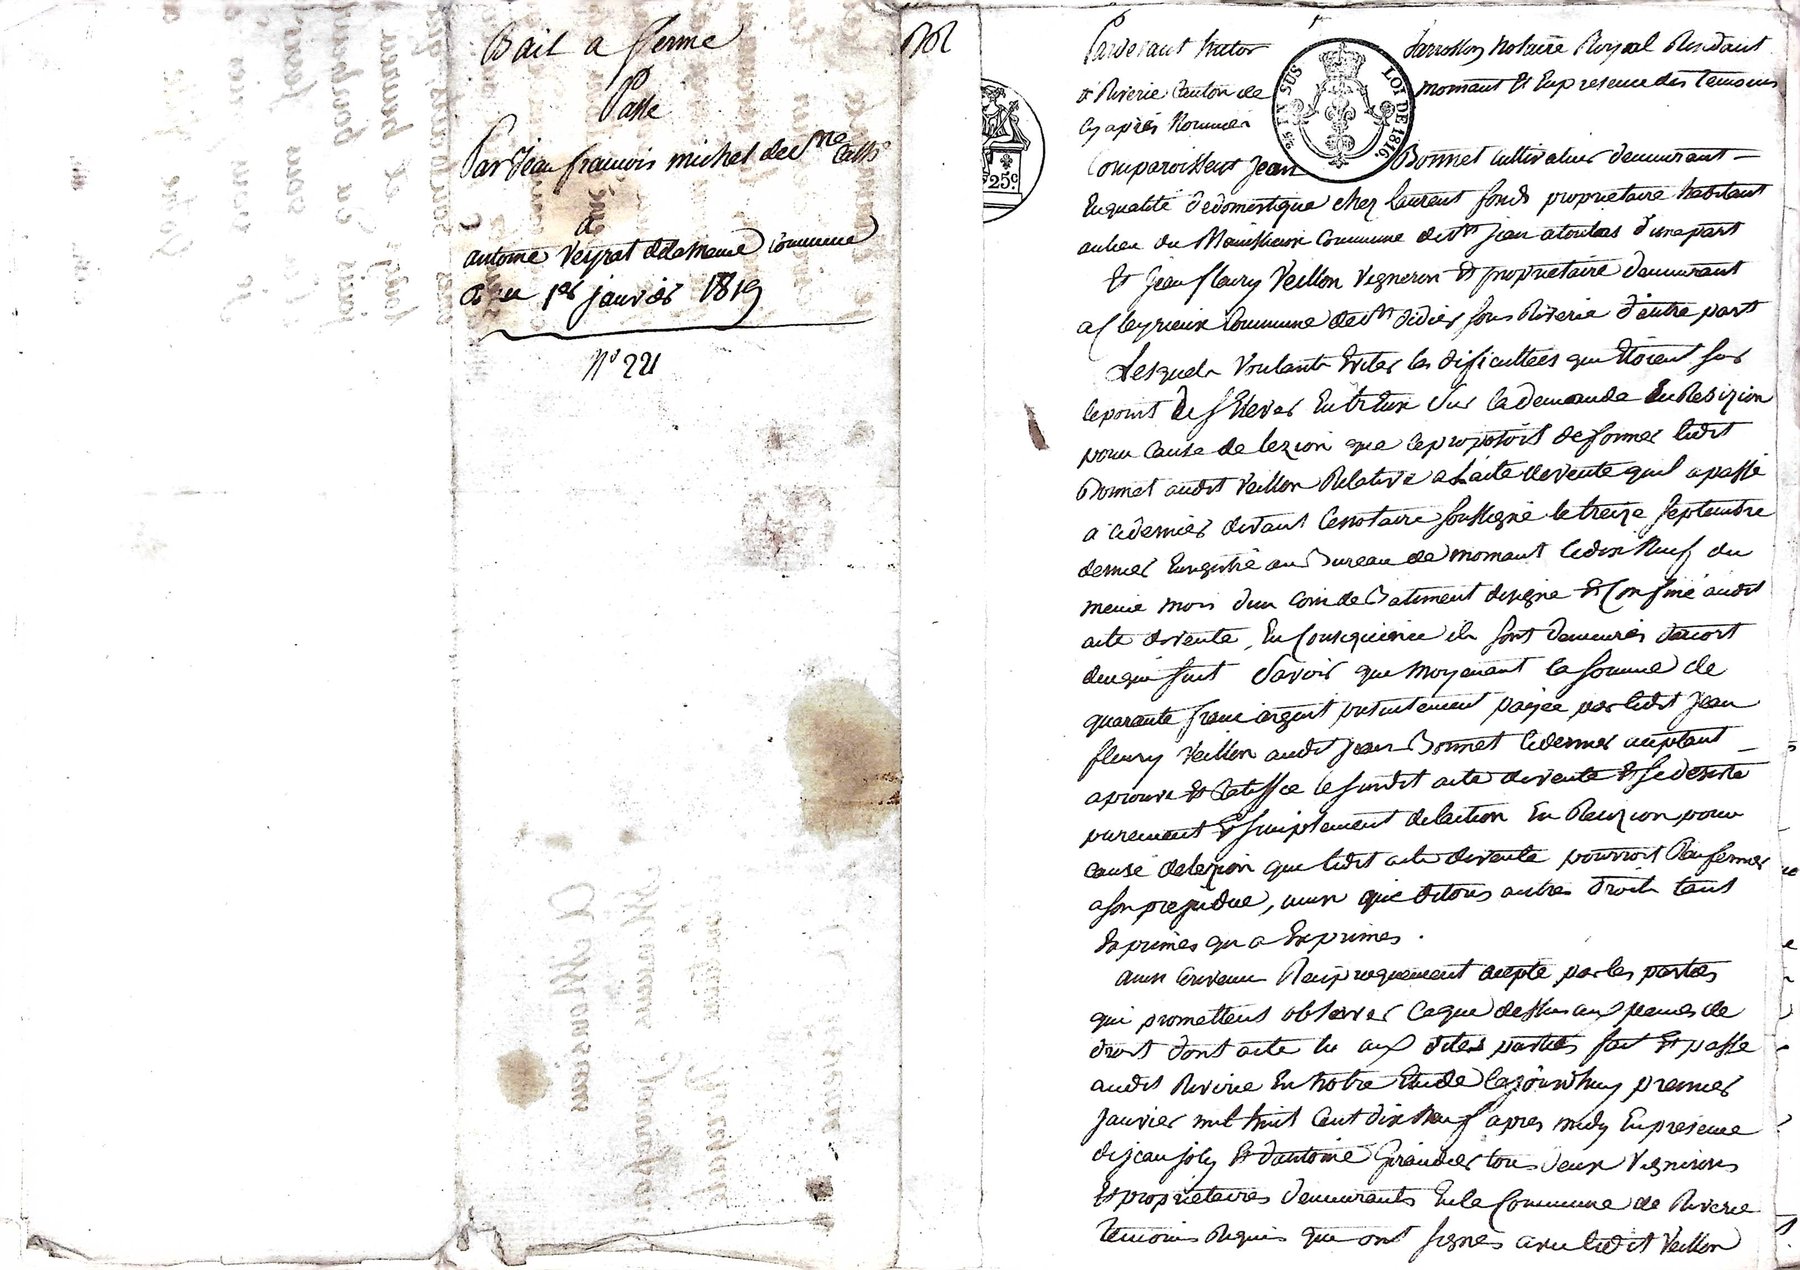 Bail a ferme
Passé
Par Jean francois michel de Ste Cathe
a
antoine Veyrat de la meme Commune
Du 1er janvier 1819
No 221
25c.
EN SUS
LOI DE 1816
Pardevant Victor Jarrosson Notaire Royal Residant
a Riverie Canton de mornant Et En presence des temoins
cy après Nommes
Comparoissent Jean Bonnet cultivateur demeurant
En qualité de domestique chez laurent fond proprietaire habitant
au lieu du Commune de St jean a toulas d'une part
Et Jean fleury Veillon Vigneron Et proprietaire demeurant
a Commune de St didier sous Riverie d'autre part
Lesquels Voulants Eviter les dificultées qui Etoient sur
le point de s'Elever Entr'eux sur la demande En Resizion
pour Cause de lezion que ce proposoit de former ledit
Bonnet audit Veillon Relative a Lacte de vente quil a passé
a ce dernier devant le notaire soussigné le treize septembre
dernier Enregistré au Bureau de mornant le dix Neuf du
meme mois d'un Coin de Batiment designé Et Confiné audit
acte de vente, En Consequence ils sont demeurés d'acort
de ce qui suit Savoir que moyenant la somme de
quarante franc argent presentement payée par ledit Jean
fleury Veillon audit Jean Bonnet ce dernier acceptant
aprouve Et Ratiffie le susdit acte de vente Et se desiste
purement Et simplement de l'action En Reuzion pour
cause de lezion que ledit acte de vente pourroit Renfermer
a son prejudice, ainsi que de tous autres droits tant
Exprimés qu a Exprimés.
ainsi Convenu Reciproquement accepté par les parties
qui promettent observer ce que dessus aux peines de
droit dont acte lu aux dites parties fait Et passé
audit Riverie En Notre Etude Cejourd'huy premier
Janvier mil huit Cent dix Neuf apres midy En presence
de jean joly Et d'antoine Giraudier tous deux Vignerons
Et proprietaires demeurants En la Commune de Riverie
temoins Requis qui ont signés avec ledit Veillon